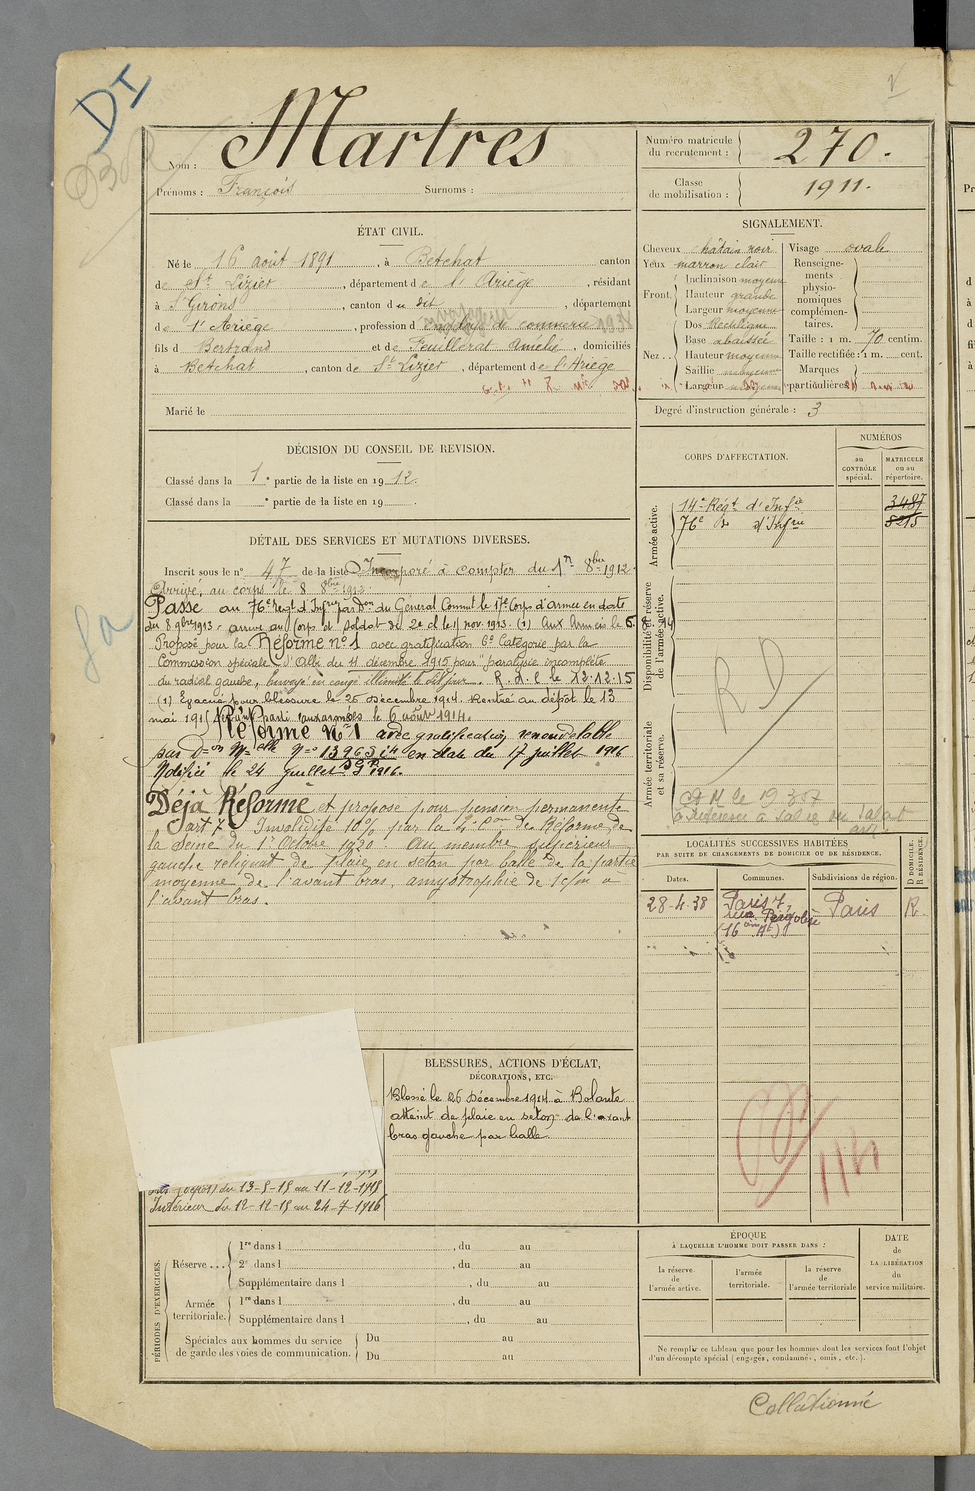 DI
Martres
Nom :
Prénoms : François Surnoms :
Numéro matricule du recrutement : 270.
Classe de mobilisation : 1911.
ÉTAT CIVIL.
Né le 16 août 1891, à Betchat canton
de St Lizier, département de l'Ariège, résidant
à St Girons, canton du dit, département
de l'Ariège, profession d'employé de commerce
fils d Bertrand et de Feuillerat Amélie, domiciliés
à Betchat, canton de St Lizier, département de l'Ariège
Marié le
SIGNALEMENT.
Cheveux châtain noir
Yeux marron clair
Front. Inclinaison moyenne
Hauteur grande
Largeur moyenne
Nez Dos Rectiligne
Base abaissée
Hauteur moyenne
Saillie moyenne
Largeur moyenne
Visage ovale
Renseignements physionomiques complémentaires.
Taille : 1 m. 70 centim.
Taille rectifiée : 1 m. cent.
Marques particulières
Degré d'instruction générale : 3
DÉCISION DU CONSEIL DE REVISION.
Classé dans la 1e partie de la liste en 1912.
Classé dans la e partie de la liste en 19 .
CORPS D'AFFECTATION.
NUMÉROS
au CONTRÔLE spécial.
MATRICULE ou au répertoire.
Armée active.
14e Régt d'Infie 3487
76e do d'Infie 8215
Disponibilité et réserve de l'armée active.
RD
Armée territoriale et sa réserve.
DÉTAIL DES SERVICES ET MUTATIONS DIVERSES.
Inscrit sous le n° 47 de la liste Incorporé à compter du 1er 8bre 1912.
Arrivé au corps le 8 8bre 1912
Passé au 76e Regt d'Infie par Don du Général Commt le 17e Corps d'armée en date
du 8 9bre 1913. arrivé au Corps et soldat de 2e cl le nov. 1913. (1) Aux Armées le 6.8.14
Proposé pour la Réforme n° 1 avec gratification 6e Catégorie par la
Commission spéciale d'Albi du 11 décembre 1915 pour "paralysie incomplète
du radial gauche, Renvoyé en congé illimité le dit jour. R.d.l. le 12.12.15
(1) Evacué pour blessure le 26 Décembre 1914. Rentré au dépôt le 13
mai 1915 parti aux armées le 6 août 1914.
Réformé N° 1 avec gratification renouvelable
par Don Melle N° 13963 en date du 17 juillet 1916
Notifiée le 24 juillet 1916.
Déjà Réformé et proposé pour pension permanente
art 7 Invalidité 10% par la 4e Con de Réforme de
la Seine du 1er Octobre 1920. Au membre supérieur
gauche reliquat de plaie en séton par balle de la partie
moyenne de l'avant bras, amyotrophie de 1c/m à
l'avant bras.
LOCALITÉS SUCCESSIVES HABITÉES
PAR SUITE DE CHANGEMENTS DE DOMICILE OU DE RÉSIDENCE.
Dates. Communes. Subdivisions de région. D DOMICILE. R RÉSIDENCE.
28-4-38 Paris 7, rue Pergolèse (16ème At) Paris R.
BLESSURES, ACTIONS D'ÉCLAT,
DÉCORATIONS, ETC.
Blessé le 26 Décembre 1914 à Bolante
atteint de plaie en séton de l'avant
bras gauche par balle
du 13-5-15 au 11-12-1915
Intérieur du 12-12-15 au 24-7-1916
114
PÉRIODES D'EXERCICES.
Réserve ... 1re dans l , du au
2e dans l , du au
Supplémentaire dans l , du au
Armée territoriale. 1re dans l , du au
Supplémentaire dans l , du au
Spéciales aux hommes du service de garde des voies de communication. Du au
Du au
ÉPOQUE
À LAQUELLE L'HOMME DOIT PASSER DANS :
la réserve de l'armée active.
l'armée territoriale.
la réserve de l'armée territoriale
DATE de LA LIBÉRATION du service militaire.
Ne remplir ce tableau que pour les hommes dont les services font l'objet
d'un décompte spécial (engagés, condamnés, omis, etc.).
Collationné